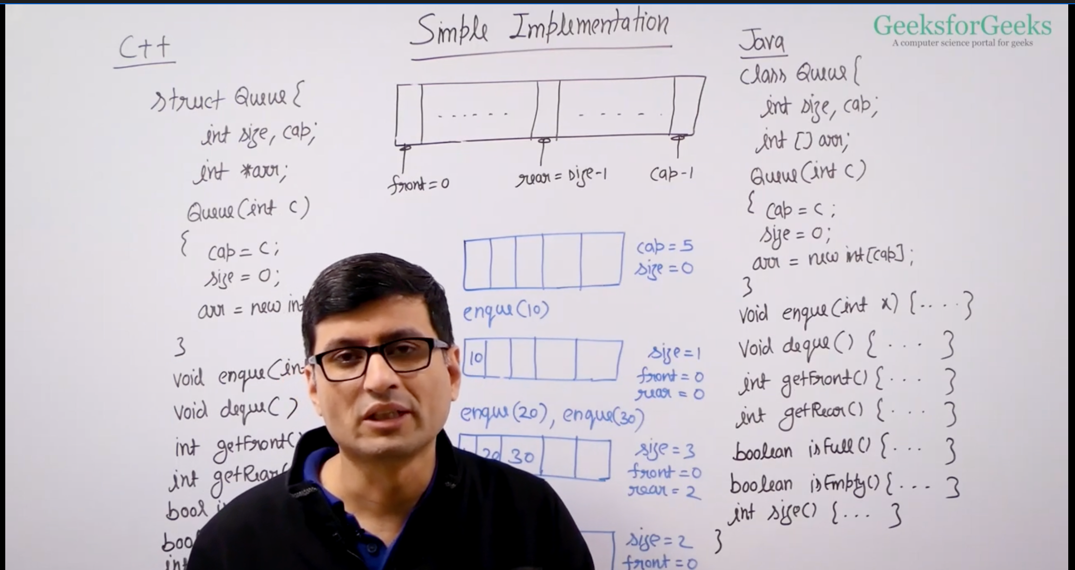 Simple Implementation
GeeksforGeeks
A computer science portal for geeks
C++
struct Queue {
int size, cap;
int *arr;
Queue(int c)
{ cap = c;
size = 0;
arr = new int
}
void enque(in
void deque()
int getFront(
int getRear
bool i
boo
int
...... .....
front = 0 rear = size-1 cap-1
cap = 5
size = 0
enque(10)
10
size = 1
front = 0
rear = 0
enque(20), enque(30)
20 30
size = 3
front = 0
rear = 2
size = 2
front = 0
Java
class Queue {
int size, cap;
int [] arr;
Queue(int c)
{ cap = c;
size = 0;
arr = new int[cap];
}
void enque(int x) {.... }
void deque() { ... }
int getFront() { ... }
int getRear() { ... }
boolean isFull() { ... }
boolean isEmpty() { ... }
int size() { ... }
}